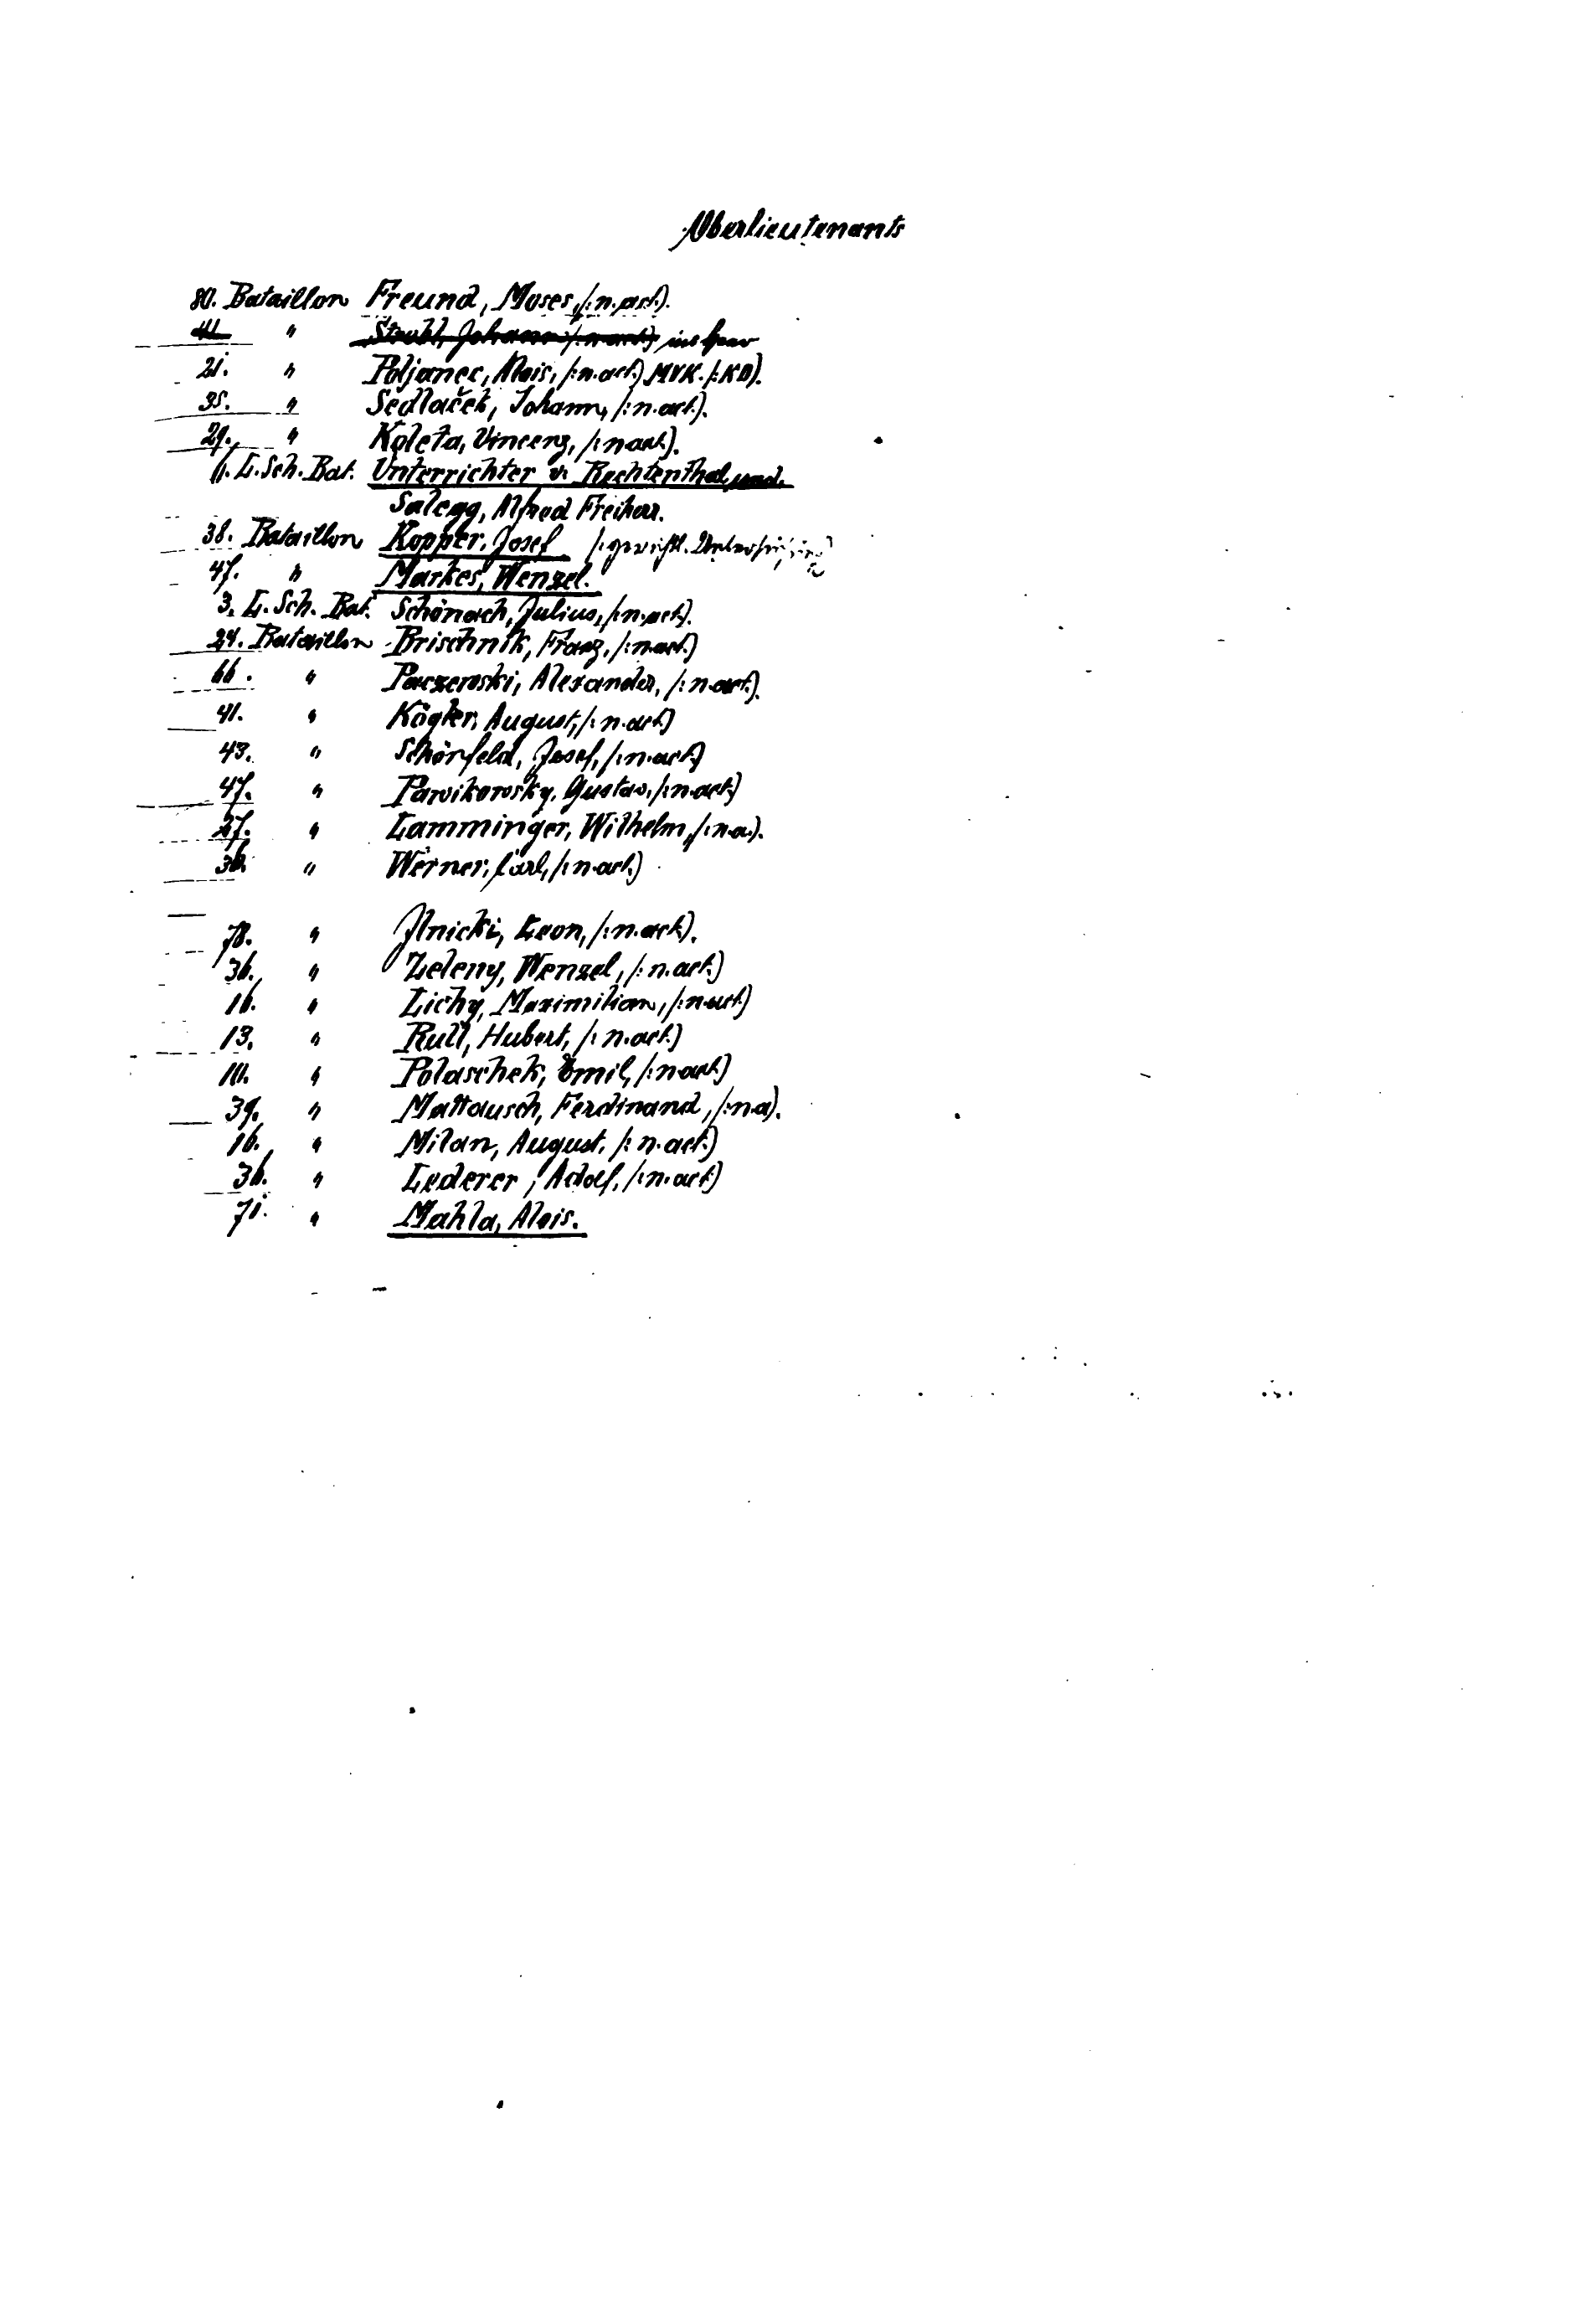 Oberlieutenants
80. Bataillon Freund, Moses, /:n. act.).
41. " Strohl, Johann /:n. act.) ins Heer
21. " Poljanec, Alois, /:n. act.) MVK. /:KD).
35. " Sedlaček, Johann, /:n. act.).
29. " Koleta, Vincenz, /:n act.).
6. L. Sch. Bat. Unterrichter v. Rechtenthal und
Salegg, Alfred Freiherr.
38. Bataillon Kopper, Josef /:gerichtl.
47. " Markes, Wenzel.
3. L. Sch. Bat. Schönach, Julius, /:n. act.).
24. Bataillon Brischnik, Franz, /:n. act.)
66. " Paczewski, Alexander, /:n. act.).
41. " Kögler, August, /:n. act.)
43. " Schönfeld, Josef, /:n. act.)
47. " Pawikowsky, Gustav, /:n. act.)
27. " Lamminger, Wilhelm, /:n. a.).
36. " Werner, Carl, /:n. act.)
78. " Jlnicki, Leon, /:n. act.).
36. " Zeleny, Wenzel, /:n. act.)
16. " Lichy, Maximilian, /:n. act.)
13. " Rull, Hubert, /:n. act.)
10. " Polaschek, Emil, /:n. act.)
39. " Mattausch, Ferdinand, /:n. a).
16. " Milan, August, /:n. act.)
36. " Lederer, Adolf, /:n. act.)
71. " Mahla, Alois.